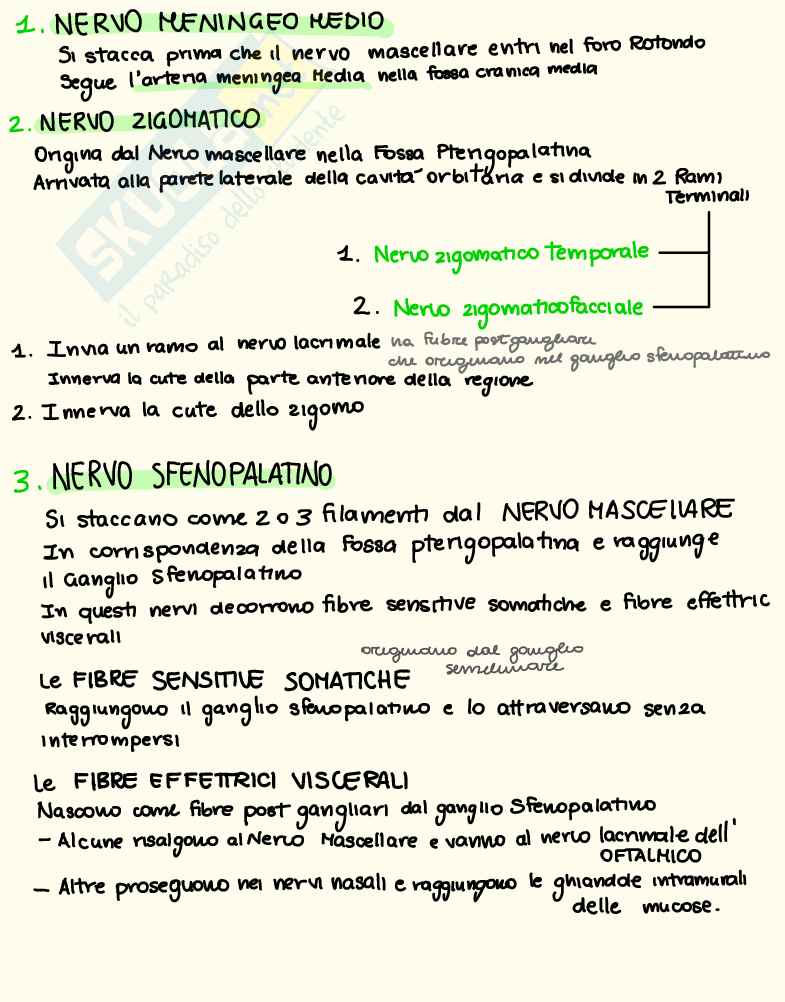 1. NERVO MENINGEO MEDIO
Si stacca prima che il nervo mascellare entri nel foro Rotondo
Segue l'arteria meningea Media nella fossa cranica media
2. NERVO ZIGOMATICO
Origina dal Nervo mascellare nella Fossa Pterigopalatina
Arrivata alla parete laterale della cavità orbitaria e si divide in 2 Rami
Terminali
1. Nervo zigomatico Temporale
2. Nervo zigomaticofacciale
1. Invia un ramo al nervo lacrimale ha fibre postgangliari
che originano nel ganglio sfenopalatino
Innerva la cute della parte anteriore della regione
2. Innerva la cute dello zigomo
3. NERVO SFENOPALATINO
Si staccano come 2 o 3 filamenti dal NERVO MASCELLARE
In corrispondenza della Fossa pterigopalatina e raggiunge
il Ganglio Sfenopalatino
In questi nervi decorrono fibre sensitive somatiche e fibre effettric
viscerali
originano dal ganglio
semilunare
Le FIBRE SENSITIVE SOMATICHE
Raggiungono il ganglio sfenopalatino e lo attraversano senza
interrompersi
Le FIBRE EFFETTRICI VISCERALI
Nascono come fibre post gangliari dal ganglio Sfenopalatino
- Alcune risalgono al Nervo Mascellare e vanno al nervo lacrimale dell'
OFTALMICO
- Altre proseguono nei nervi nasali e raggiungono le ghiandole intramurali
delle mucose.
SKUOLA.net
il paradiso dello studente